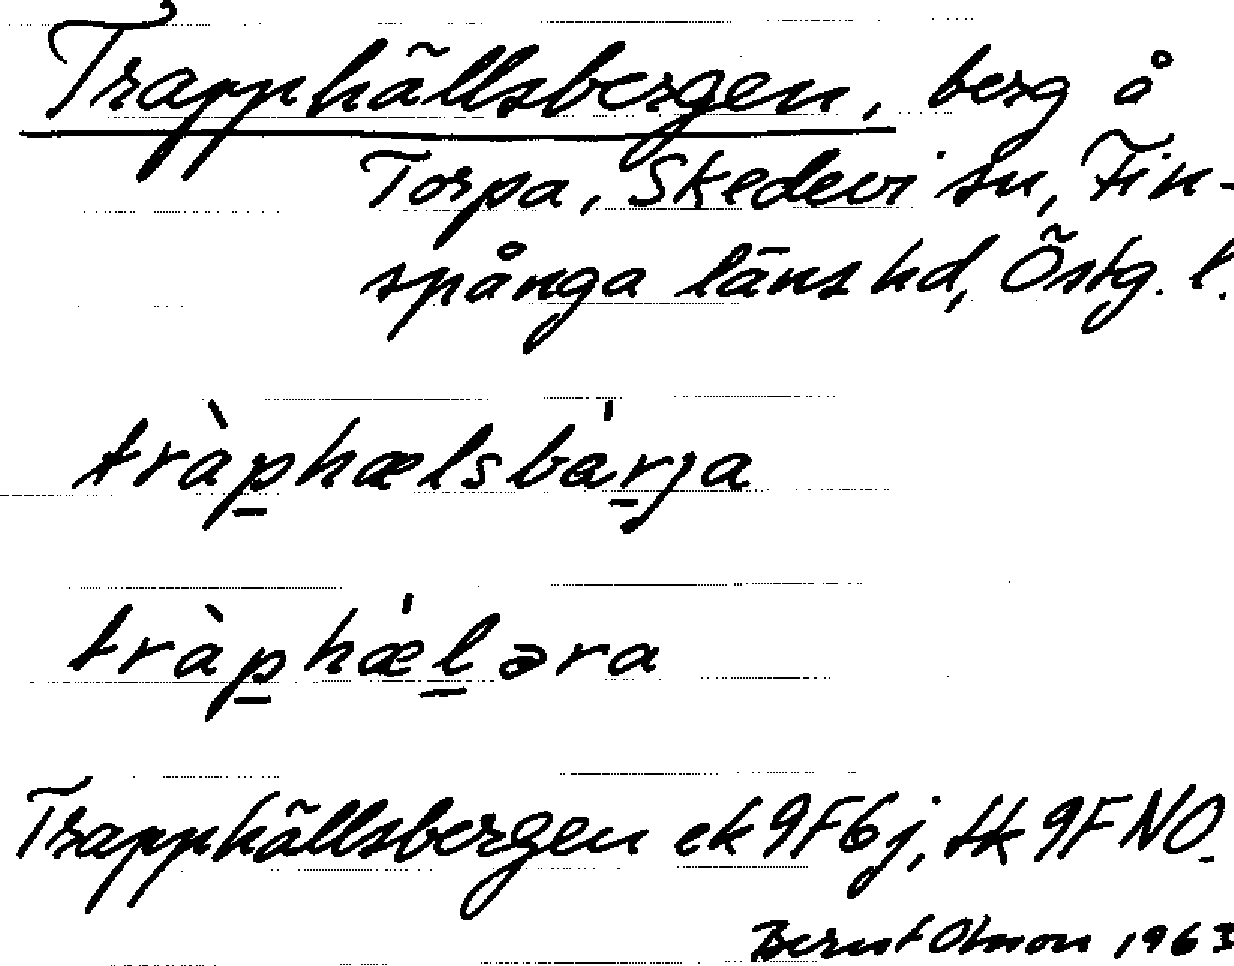 Trapphällsbergen, berg å
Torpa, Skedevi sn, Fin-
spånga läns hd, Östg. l.
tràp̲hælsbàr̲ja
tràp̲hæ̀l̲əra
Trapphällsbergen ek 9F6j, tk 9F NO.
Bernt Olsson 1963